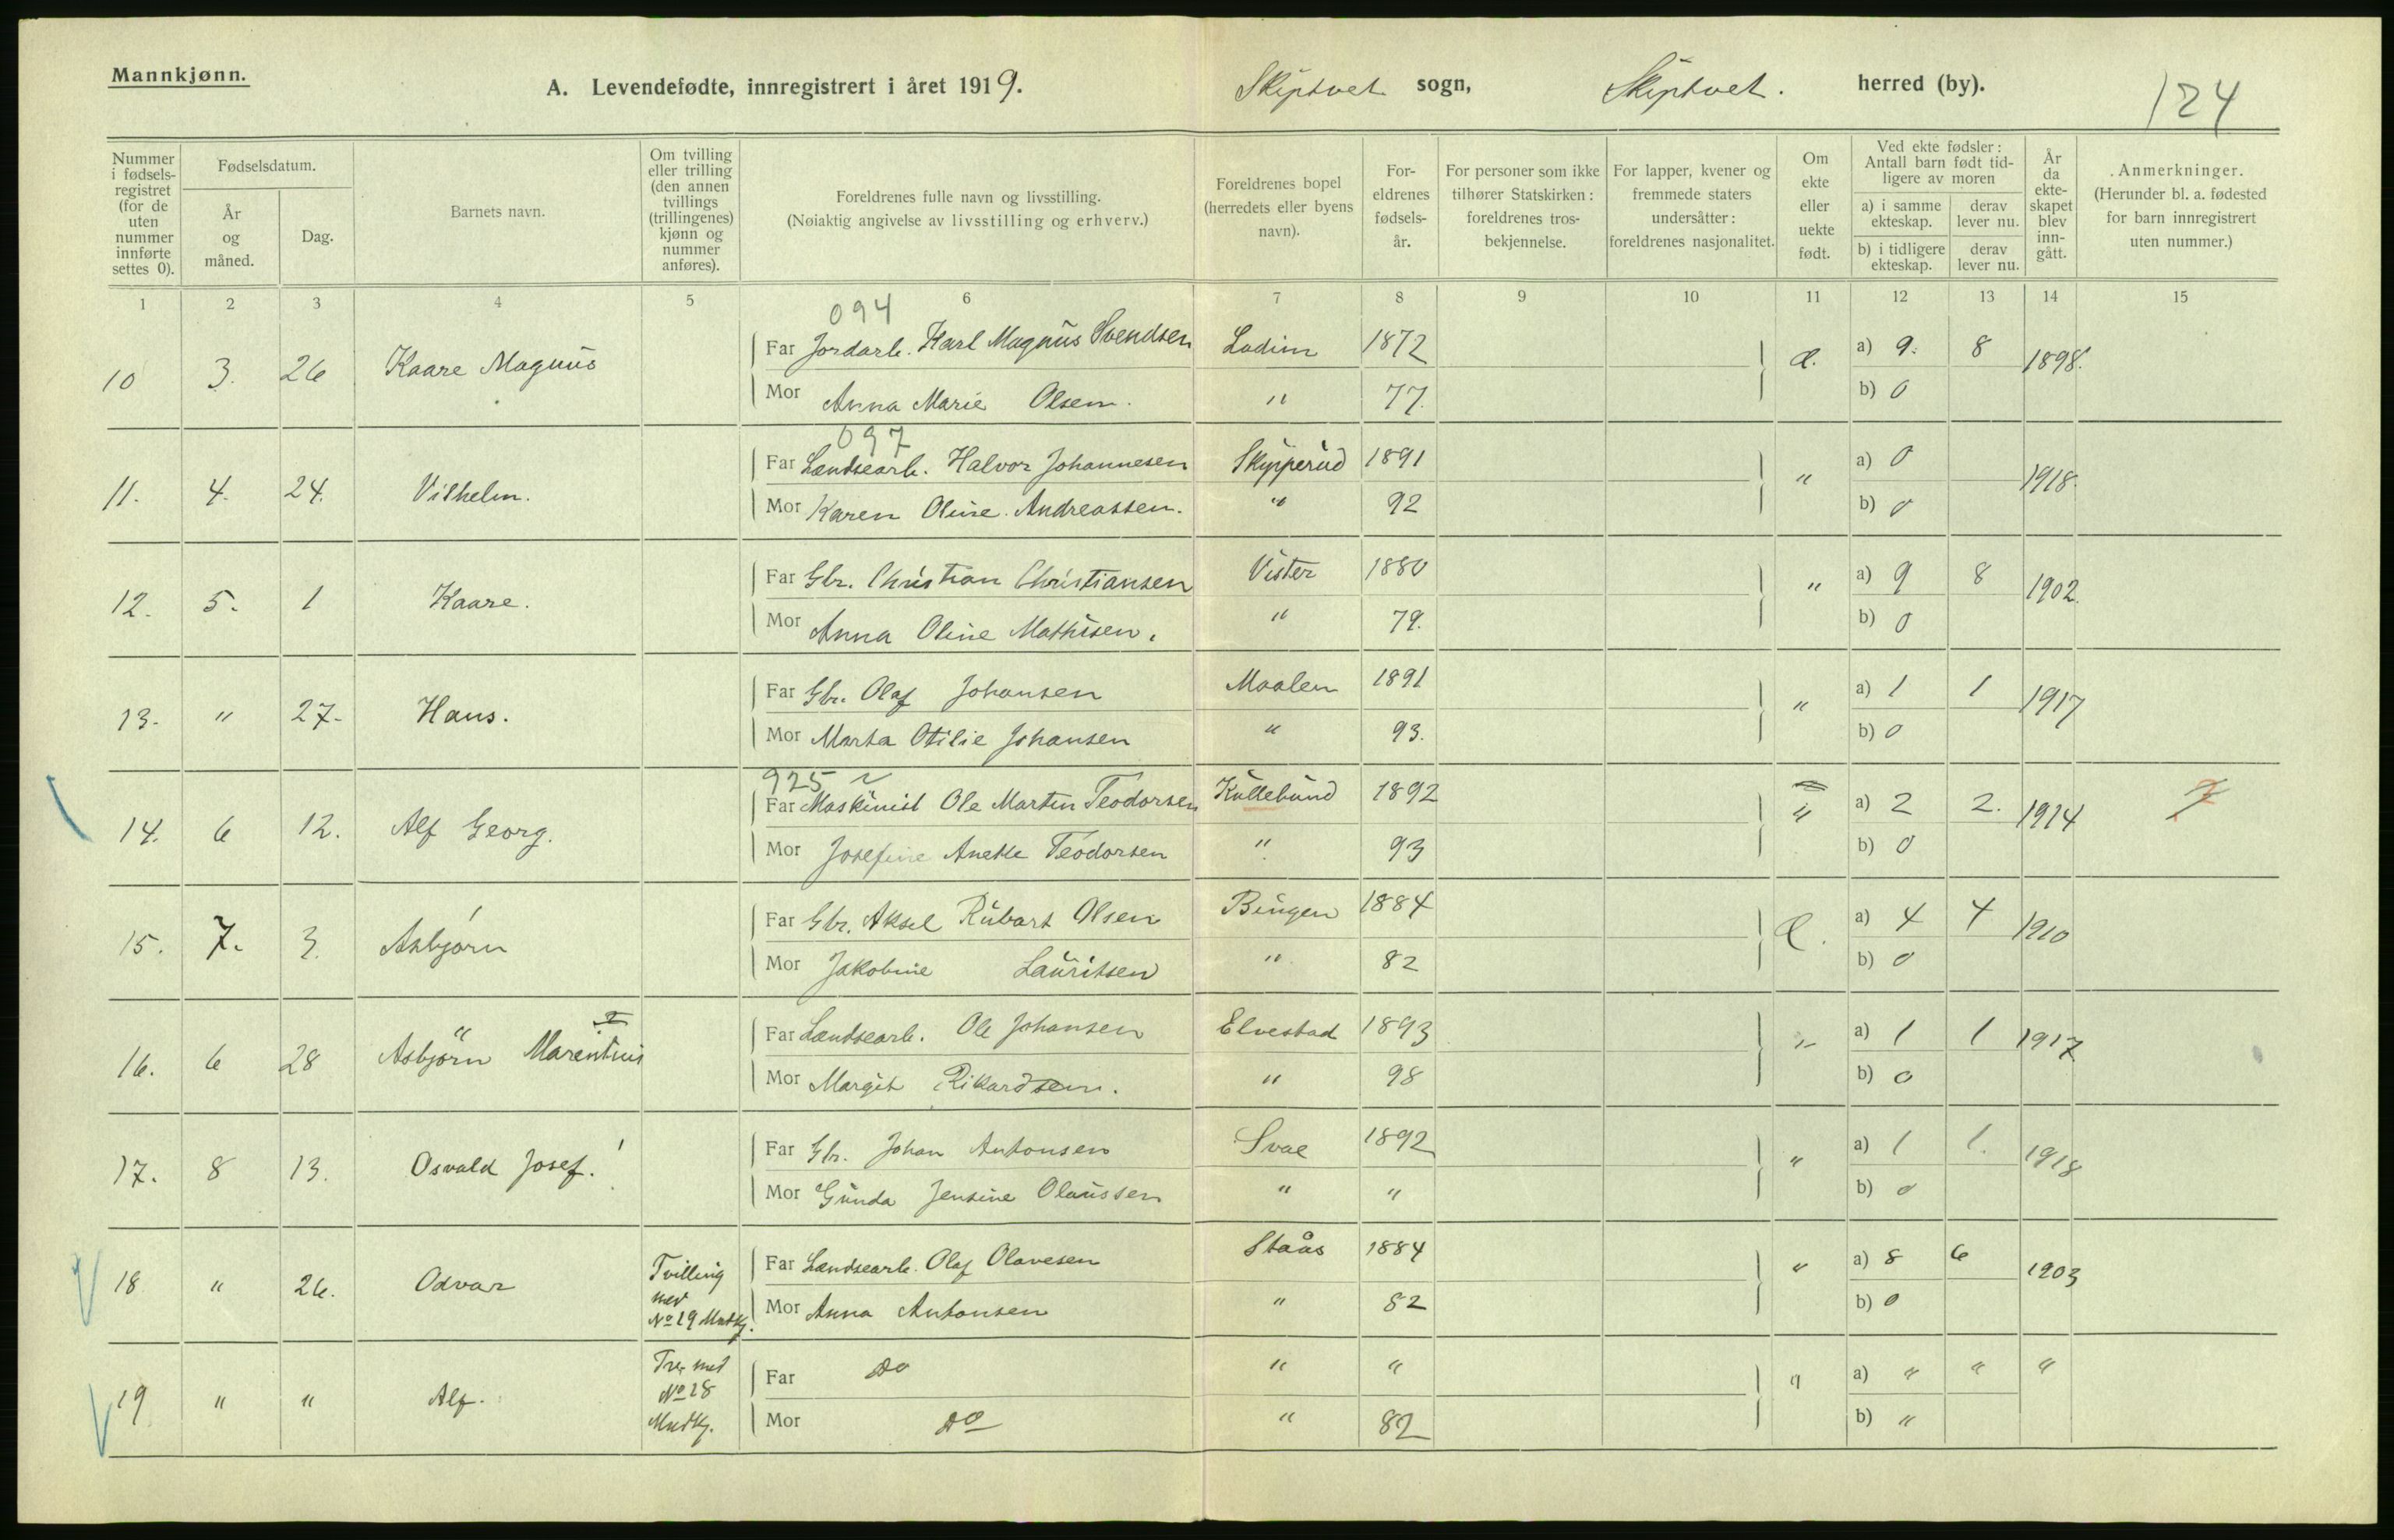 Mannkjønn.
A. Levendefødte, innregistrert i året 1919.
Skiptvet sogn, Skiptvet. herred (by).
124
Nummer i fødsels-registret (for de uten nummer innførte settes 0).
Fødselsdatum.
År og måned.
Dag.
Barnets navn.
Om tvilling eller trilling (den annen tvillings (trillingenes) kjønn og nummer anføres).
Foreldrenes fulle navn og livsstilling.
(Nøiaktig angivelse av livsstilling og erhverv.)
Foreldrenes bopel (herredets eller byens navn).
For-eldrenes fødsels-år.
For personer som ikke tilhører Statskirken: foreldrenes tros-bekjennelse.
For lapper, kvener og fremmede staters undersåtter: foreldrenes nasjonalitet.
Om ekte eller uekte født.
Ved ekte fødsler: Antall barn født tid-ligere av moren
a) i samme ekteskap.
derav lever nu.
b) i tidligere ekteskap.
derav lever nu.
År da ekte-skapet blev inn-gått.
Anmerkninger.
(Herunder bl. a. fødested for barn innregistrert uten nummer.)
1 2 3 4 5 6 7 8 9 10 11 12 13 14 15
094
10 3. 26 Kaare Magnus Far Jordarb. Karl Magnus Svendsen Lodim 1872 a) 9. 8 1898.
Mor Anna Marie Olsen. " 77. b) 0
097
11. 4. 24. Vilhelm. Far Landsearb. Halvor Johannesen Skypperud 1891 " a) 0 1918.
Mor Karen Oline Andreassen. " 92 b) 0
12. 5. 1 Kaare. Far Gbr. Christian Christiansen Vister 1880 " a) 9 8 1902.
Mor Anna Oline Mathisen. " 79. b) 0
13. " 27. Hans. Far Gbr. Olaf Johansen Maalen 1891 " a) 1 1 1917
Mor Marta Otilie Johansen " 93. b) 0
925
14. 6 12. Alf Georg. Far Maskinist Ole Martin Teodorsen Kullebund 1892 " a) 2 2. 1914
Mor Josefine Anette Teodorsen " 93 b) 0
15. 7. 3. Asbjørn Far Gbr. Aksel Rubart Olsen Bingen 1884 a) 4 4 1910
Mor Jakobine Lauritsen " 82 b) 0
16. 6 28 Asbjörn Marentius Far Landsearb. Ole Johansen Elvestad 1893 " a) 1 1 1917
Mor Margit Rikardsen. " 98 b) 0
17. 8 13. Osvald Josef. Far Gbr. Johan Antonsen Svae 1892 " a) 1 1. 1918
Mor Gunda Jensine Olaussen " " b) 0
18 " 26. Odvar Tvilling med No 19 Mndkj. Far Landsearb. Olaf Olavesen Staås 1884 " a) 8 6 1903
Mor Anna Antonsen " 82 b) 0
19 " " Alf. med No 18 Mndkj. Far do " " " a) " " "
Mor do " 82 b) "